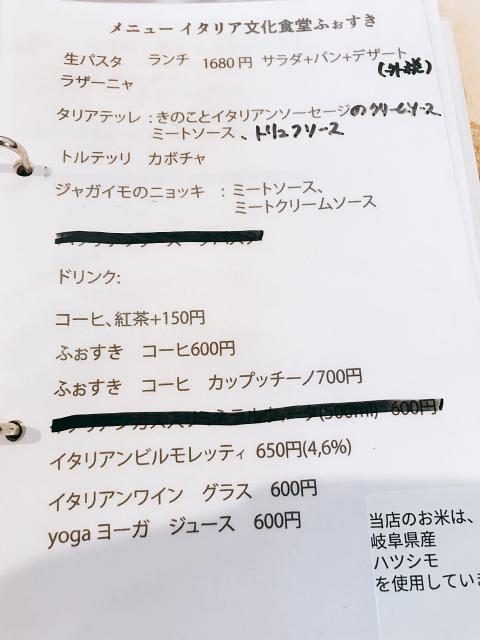 メニュー イタリア文化食堂ふぉすき
生パスタ ランチ 1680円 サラダ+パン+デザート
(外税)
ラザーニャ
タリアテッレ : きのことイタリアンソーセージのクリームソース
ミートソース、トリュフソース
トルテッリ カボチャ
ジャガイモのニョッキ : ミートソース、
ミートクリームソース
ドリンク:
コーヒ、紅茶+150円
ふぉすき コーヒ600円
ふぉすき コーヒ カップッチーノ700円
(500ml) 600円
イタリアンビルモレッティ 650円(4,6%)
イタリアンワイン グラス 600円
yoga ヨーガ ジュース 600円
当店のお米は、
岐阜県産
ハツシモ
を使用していま